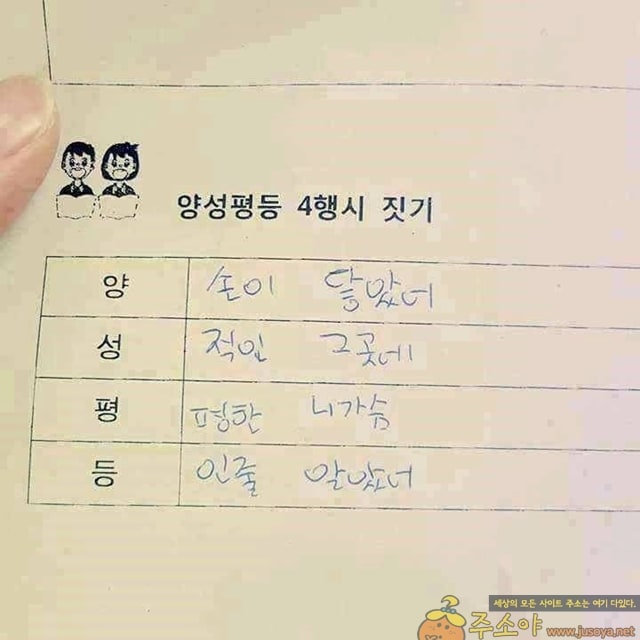 양성평등 4행시 짓기
양 손이 닿았어
성 적인 그곳에
평 평한 니가슴
등 인줄 알았어
세상의 모든 사이트 주소는 여기 다있다.
주소야 www.jusoya.net